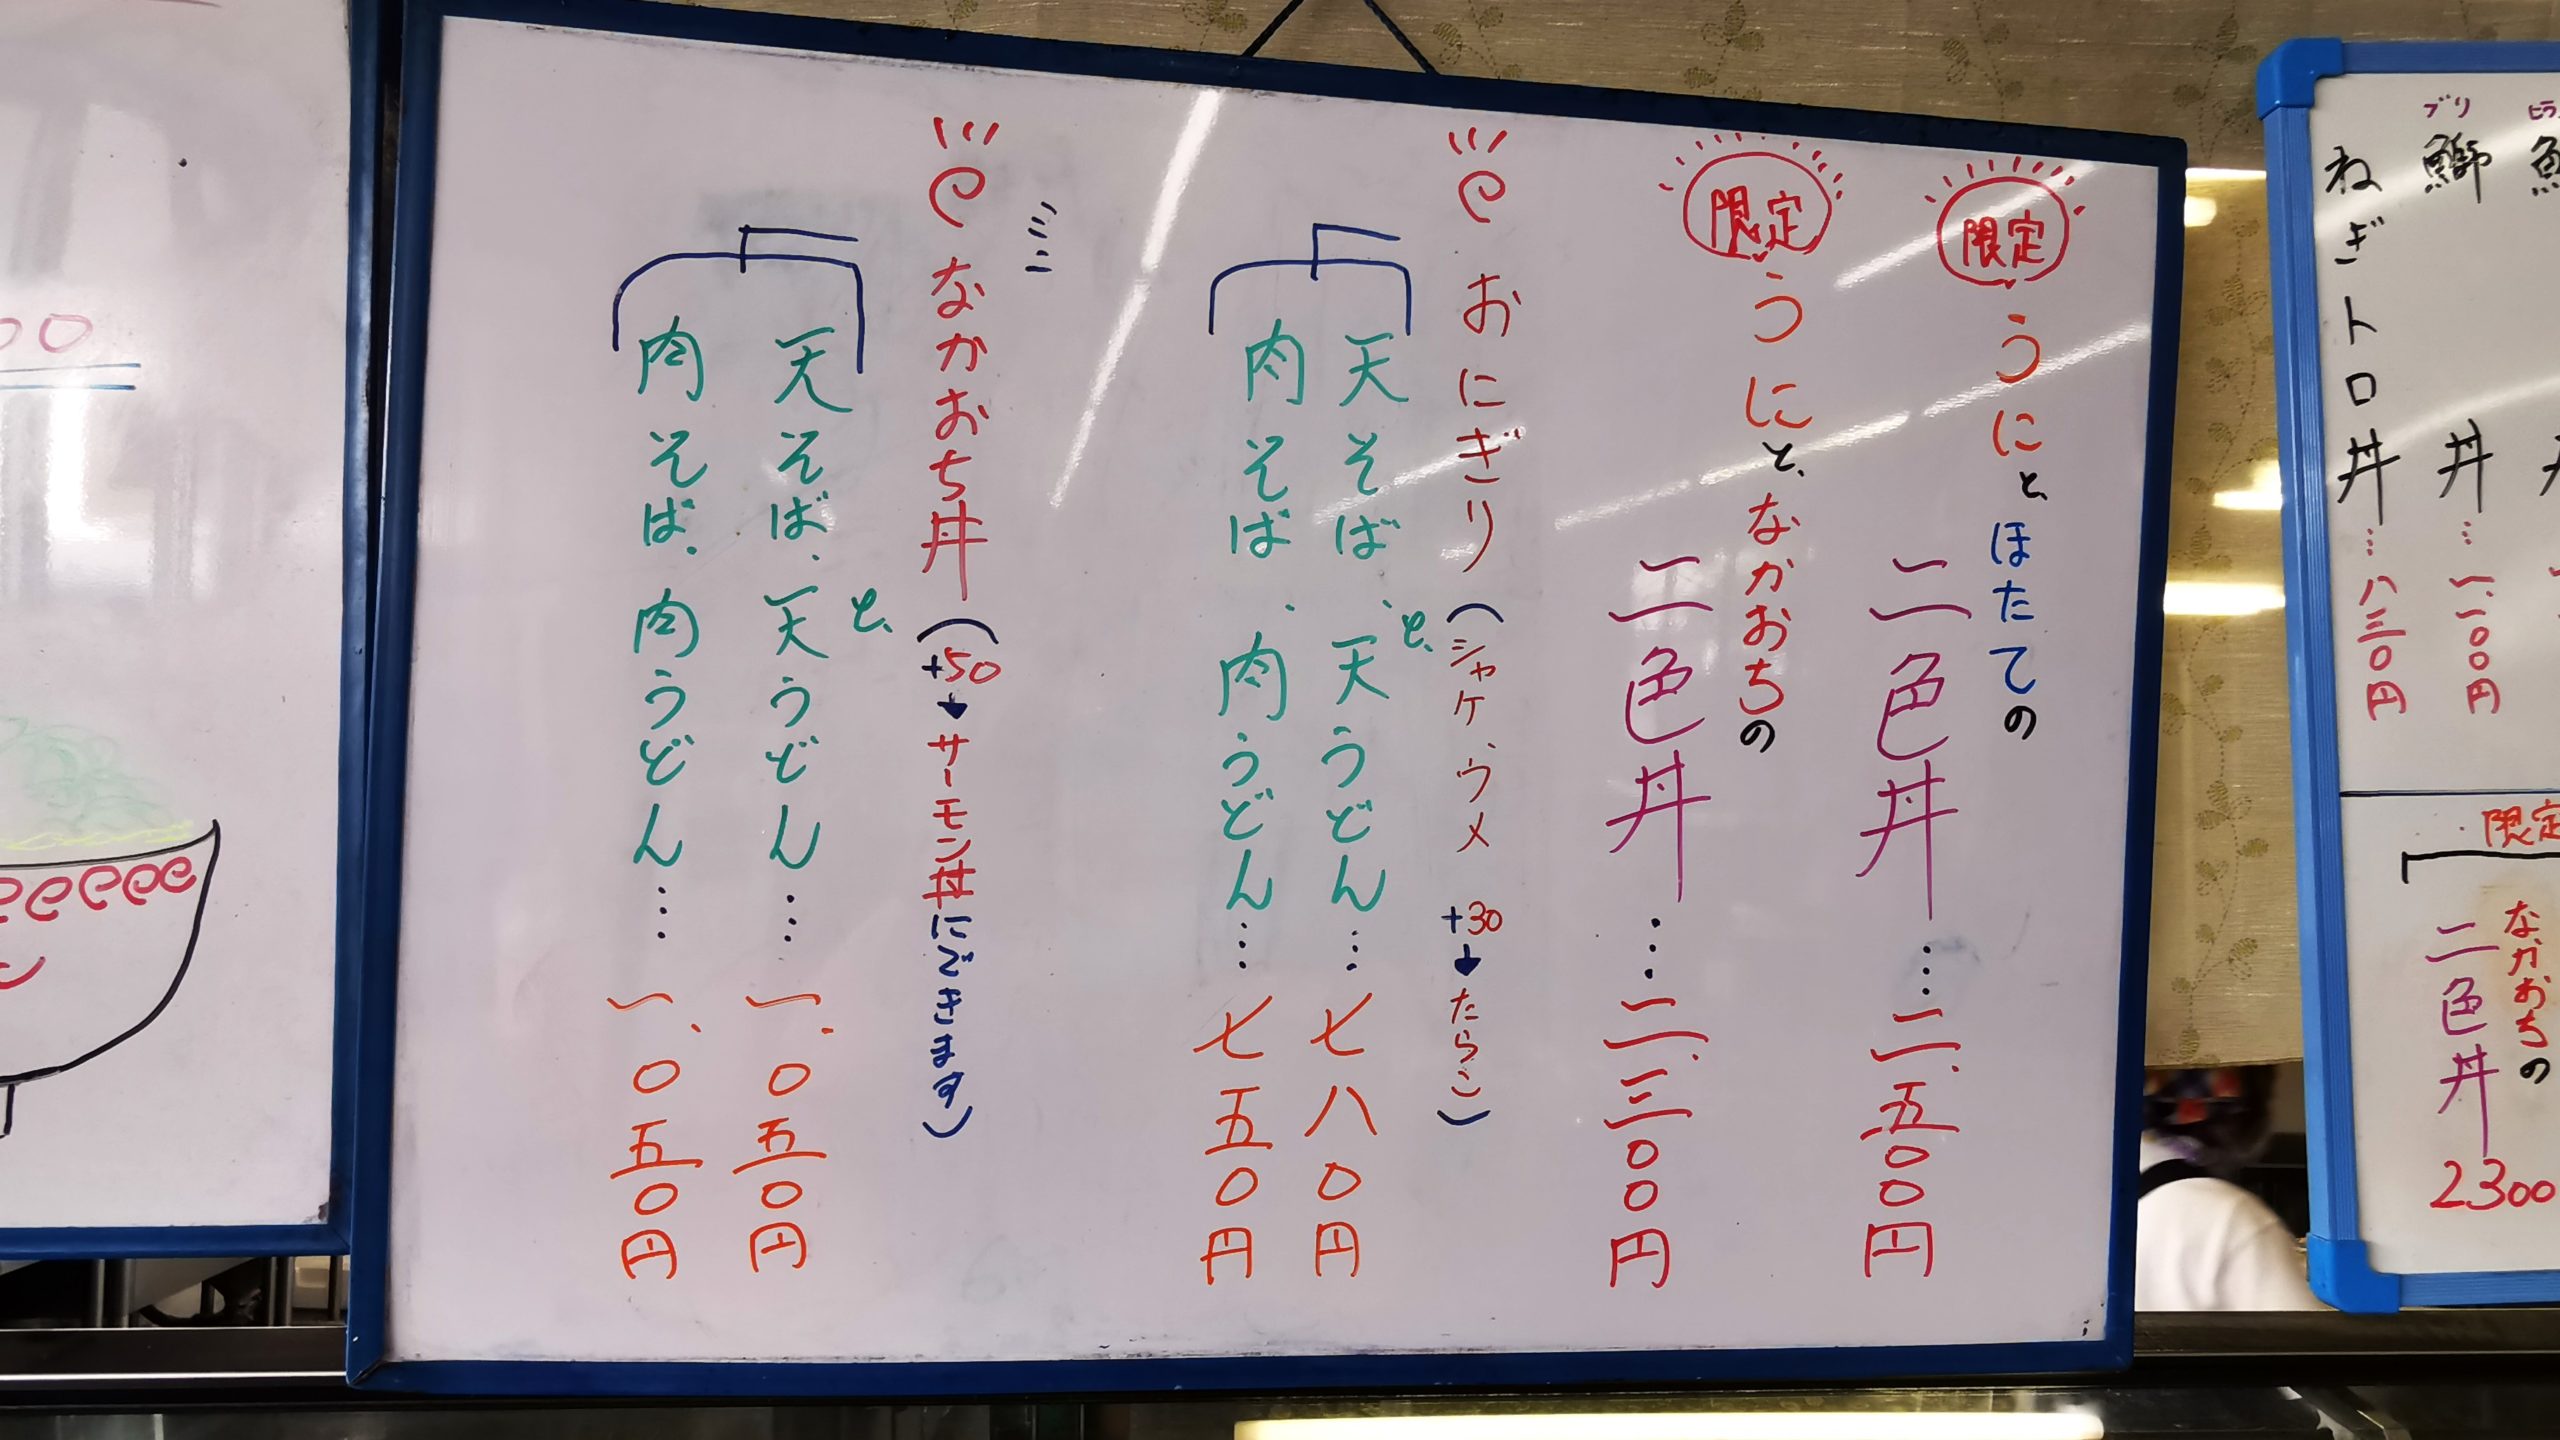 ヒラ
ブリ
鰤丼…一、一〇〇円
ねぎトロ丼…八三〇円
限定
なかおちの
二色丼
2300
限定
うにと、ほたての
二色丼…二、五〇〇円
限定
うにと、なかおちの
二色丼…二、三〇〇円
おにぎり(シャケ、ウメ +30→たらこ)
と、
天そば、天うどん…七八〇円
肉そば、肉うどん…七五〇円
ミニ
なかおち丼(+50→サーモン丼にできます)
と、
天そば、天うどん…一、〇五〇円
肉そば、肉うどん…一、〇五〇円
00